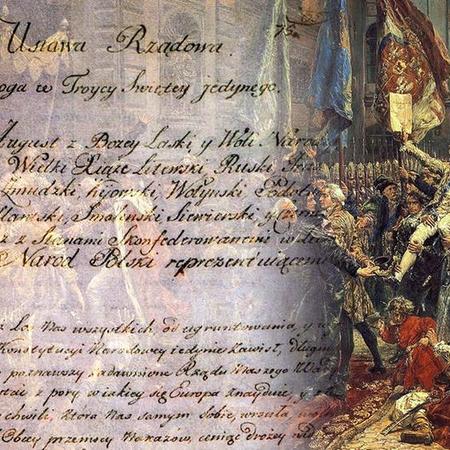 Ustawa Rządowa.
oga w Troycy Swiętey jedynego.
August z Bożey Łaski y Woli Narod
Wielki Xiąże Litewski, Ruski,
Żmudzki, Kijowski, Wołyński, Podol
Smolenski Siewierski y Czer
z z Stanami Skonfederowanemi w licz
Narod Polski reprezentuiącemi
z Los Nas wszystkich od ugruntowania, y
Konstytucyi Narodowey iedynie zawisł, długim
poznawszy zadawnione Rządu Naszego Wad
z pory w iakiey się Europa znayduie, y
chwili, ktora Nas samym sobie wrociła, wolni
Obcey przemocy Nakazow, ceniąc drożey nad